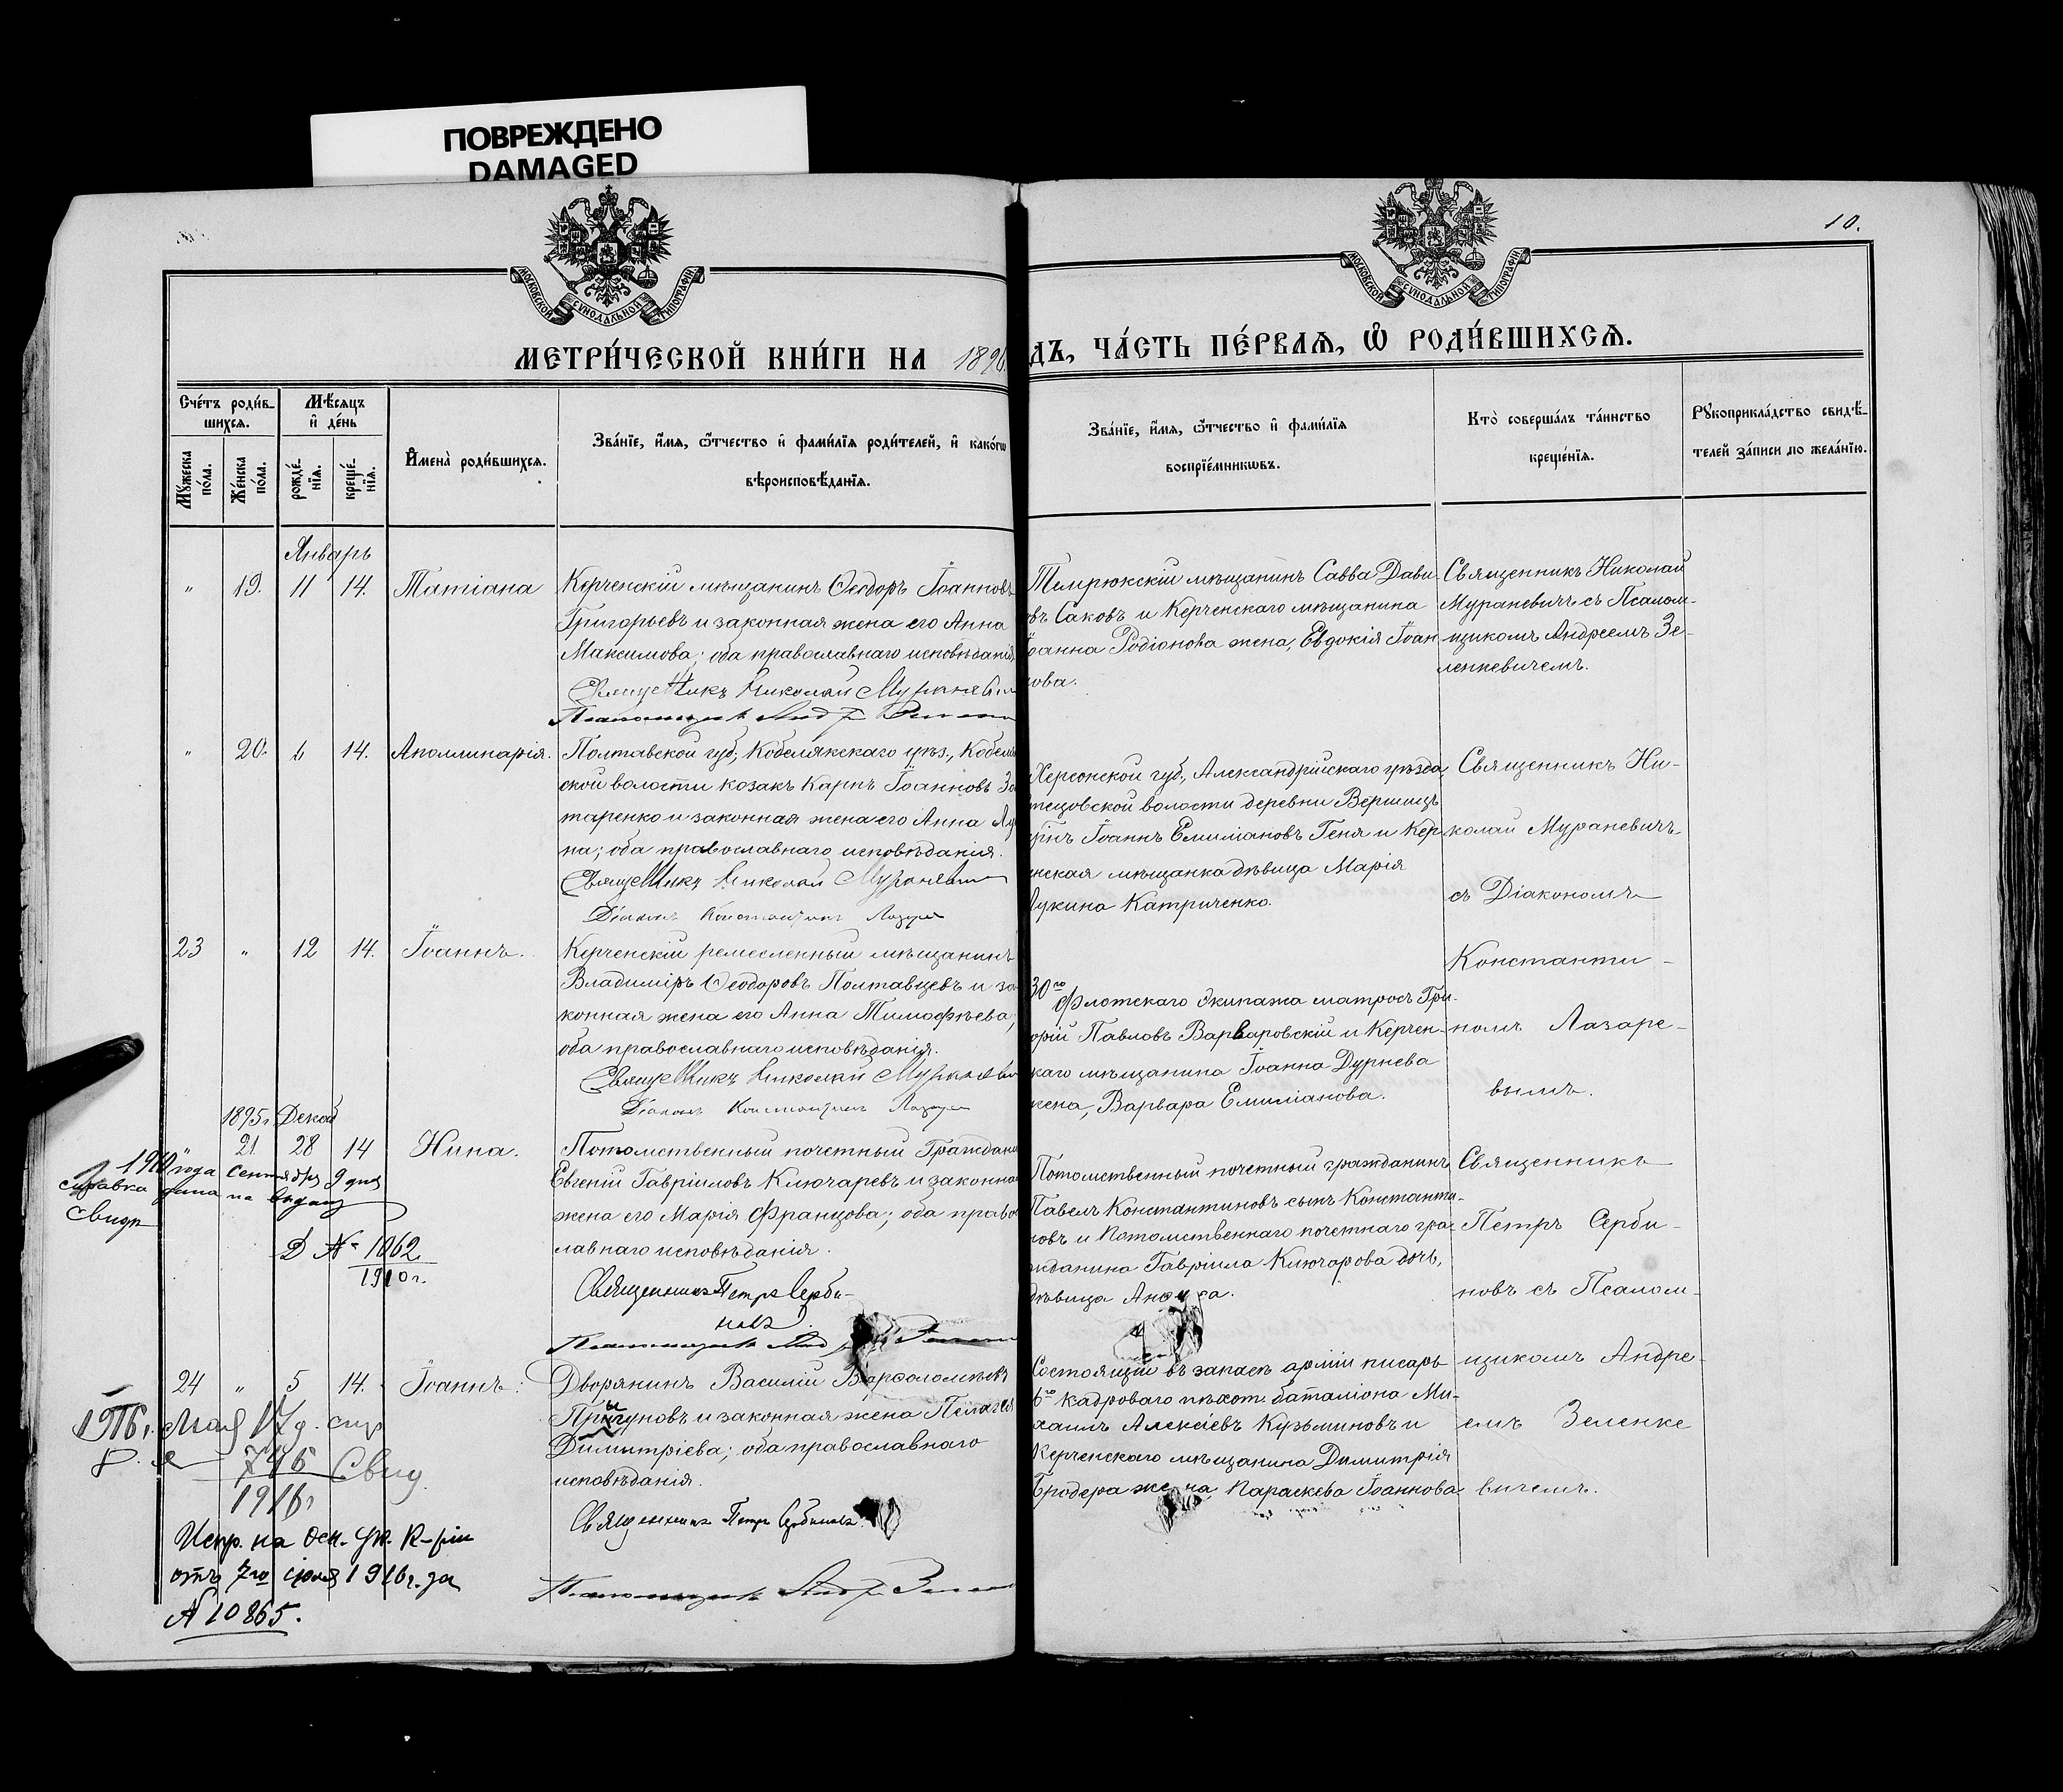 ПОВРЕЖДЕНО
DAMAGED
МОСКОВСКОЙ СѴНОДАЛЬНОЙ ТИПОГРАФІИ
МОСКОВСКОЙ СѴНОДАЛЬНОЙ ТИПОГРАФІИ
10.
МЕТРИ́ЧЕСКОЙ КНИ́ГИ НА 1896
ДЪ, ЧА́СТЬ ПЕ́РВАѦ, Ѿ РОДИ́ВШИХСѦ.
Сче́тъ роди́в-
шихсѧ.
Мѣ́сѧцъ
и҆ де́нь
Мꙋжеска по́ла.
Же́нска по́ла.
рожде́-нїѧ.
креще́-нїѧ.
И҆мена̀ роди́вшихсѧ.
Зва́нїе, и҆́мѧ, ѻ҆́тчество и҆ фами́лїѧ роди́телей, и҆ како́гѡ
вѣроисповѣ́данїѧ.
Зва́нїе, и҆́мѧ, ѻ҆́тчество и҆ фами́лїѧ
воспрїе́мникѡвъ.
Кто̀ соверша́лъ та́инство
креще́нїѧ.
Рꙋкоприкла́дство свидѣ́-
телей за́писи по жела́нїю.
Январь
" 19. 11 14. Татіана
Керченскій мѣщанинъ Ѳеодоръ Іоанновъ
Григорьевъ и законная жена его Анна
Максимова; оба православнаго исповѣданія
Священникъ Николай Мураневи
Псаломщикъ Андр
Темрюкскій мѣщанинъ Савва Дави-
овъ Саковъ и Керченскаго мѣщанина
оанна Родіонова жена, Евдокія Іоан-
нова.
Священникъ Николай
Мураневичъ съ Псалом-
щикомъ Андреемъ Зе-
ленкевичемъ.
" 20. 6 14. Аполлинарія.
Полтавской губ., Кобелякскаго уѣз., Кобеля
ской волости козакъ Карпъ Іоанновъ За
таренко и законная жена его Анна Лу
на; оба православнаго исповѣданія.
Священникъ Николай Муранев
Діаконъ Константинъ Лазаре
Херсонской губ., Александрійскаго уѣзда,
тецовской волости деревни Вершицъ
инъ Іоаннъ Емиліановъ Геня и Кер-
нская мѣщанка дѣвица Марія
Лукина Катриченко.
Священникъ Ни-
колай Мураневичъ
съ Діакономъ
Константи-
номъ Лазаре-
вымъ.
23 " 12 14. Іоаннъ.
Керченскій ремесленный мѣщанинъ
Владиміръ Ѳеодоровъ Полтавцевъ и за
конная жена его Анна Тимофѣева;
оба православнаго исповѣданія.
Священникъ Николай Мураневи
Діаконъ Константинъ Лазаре
30го Флотскаго экипажа матросъ Гри-
орій Павловъ Варваровскій и Керчен-
каго мѣщанина Іоанна Дурнева
жена, Варвара Емиліанова.
1895г. Декаб
" 21 28 14 Нина.
Потомственный почетный Граждани
Евгеній Гавріиловъ Ключаревъ и законна
жена его Марія Францова; оба право
лавнаго исповѣданія.
Священникъ Петръ Серби-
новъ.
Псаломщикъ Анд
Потомственный почетный гражданинъ
Павелъ Константиновъ сынъ Константи-
новъ и Потомственнаго почетнаго гра-
жданина Гавріила Ключарова дочь,
дѣвица
Священникъ
Петръ Серби-
новъ съ Псалом-
щикомъ Андре-
емъ Зеленке
вичемъ.
1910 года Сентября 9 дня
справка дана на выдачу
Свид
Д № 1062
1910 г.
24 " 5 14. Іоаннъ.
Дворянинъ Василій Варѳоломѣевъ
и законная жена Пелагея
Димитріева; оба православнаго
исповѣданія.
Священникъ Петръ Сербиновъ
Псаломщикъ Андр Зелен
Состоящій въ запасѣ арміи писарь
6го кадроваго пѣхот. баталіона Ми-
хаилъ Алексѣевъ Кузьминовъ и
Керченскаго мѣщанина Димитрія
Бродера жена, Параскева Іоаннова
1916г. Мая 17 д.
746 Свид.
1916г
Испр. на осн. ук. К-ріи
отъ 7го іюля 1916г. за
№ 10865.